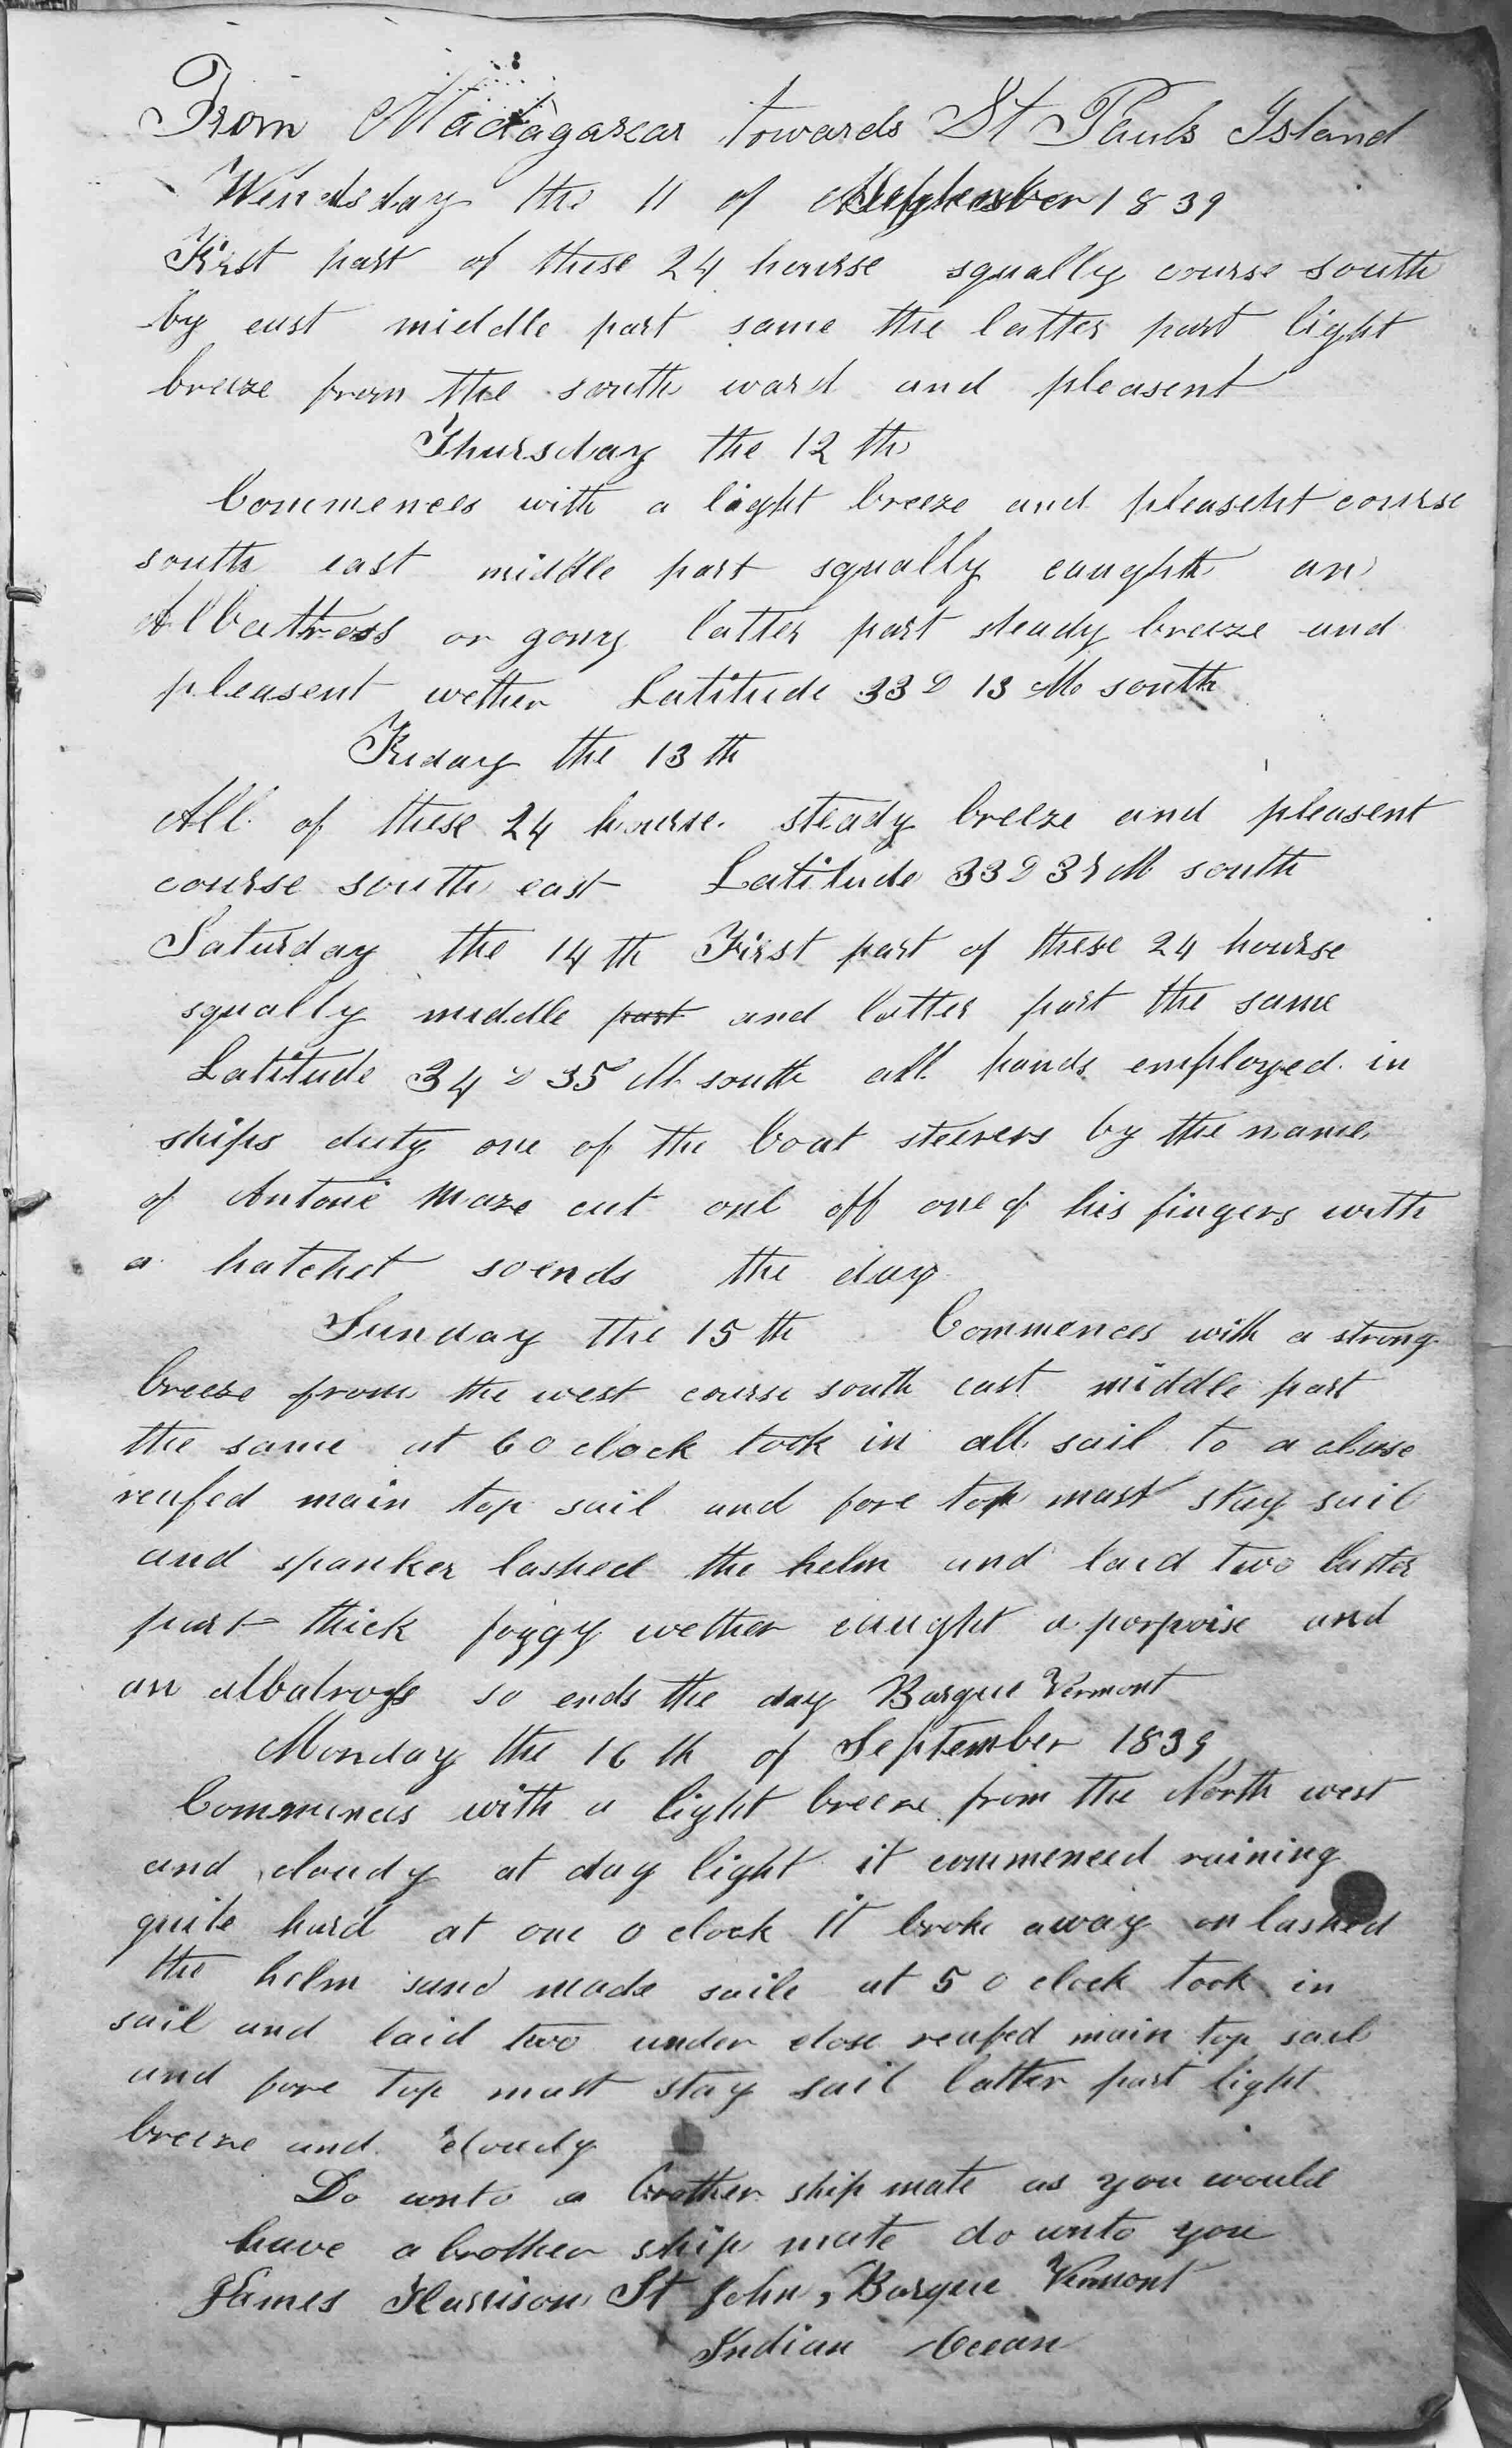 From Madagascar towards St Pauls Island
Wendsday the 11 of September 1839
First part of these 24 hourse squally course south
by east middle part same the latter part light
breeze from the south ward and pleasent
Thursday the 12 th
Commences with a light breeze and pleasent course
south east middle part squally caught an
Albatross or gony latter part steady breeze and
pleasent wether Latitude 33 D 13 Mo south
Friday the 13 th
All of these 24 hourse steady breeze and pleasent
course south east Latitude 33 D 38 M south
Saturday the 14 th First part of these 24 hourse
squally middle part and latter part the same
Latitude 34 D 35 M south all hands employed in
ships duty one of the boat steerers by the name
of Antone Maze cut one off one of his fingers with
a hatchet soends the day
Sunday the 15 th Commences with a strong
breeze from the west course south east middle part
the same at 6 o clock took in all sail to a close
reafed main top sail and fore top mast stay sail
and spanker lashed the helm and laid two latter
part thick foggy wether caught a porpoise and
an albatross so ends the day Barque Vermont
Monday the 16 th of September 1839
Commences with a light breeze from the North west
and cloudy at day light it commenced raining
quite hard at one o clock it broke away onlashed
the helm and made saile at 5 o clock took in
sail and laid two under close reafed main top sail
and fore top mast stay sail latter part light
breeze and cloudy
Do unto a brother ship mate as you would
have a brother ship mate do unto you
James Harrison St John, Barque Vermont
Indian Ocean